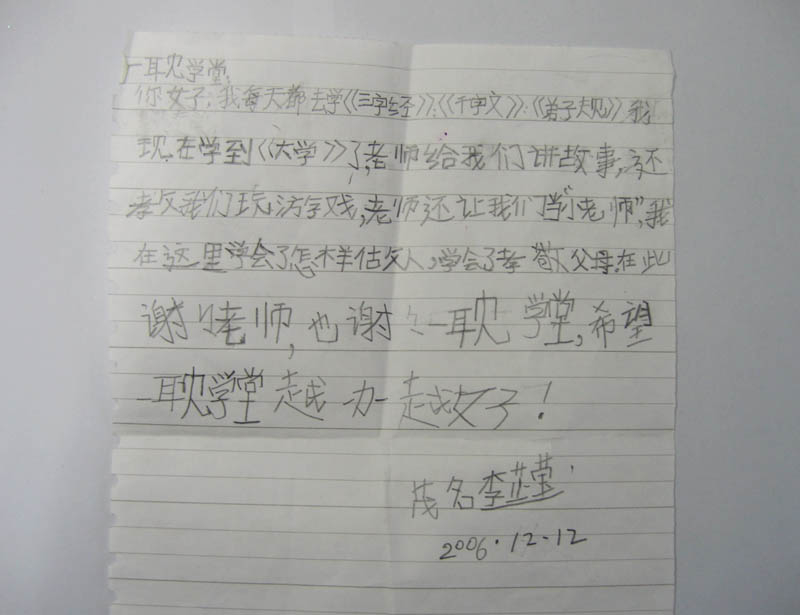 一耽学堂:
你好:我每天都去学《三字经》:《千字文》:《弟子规》我
现在学到《大学》了,老师给我们讲故事,还
教我们玩游戏,老师还让我们当“小老师”,我
在这里学会了怎样做人,学会了孝敬父母.在此
谢谢老师,也谢谢一耽学堂,希望
一耽学堂越办越好!
茂名李芷莹
2006.12-12